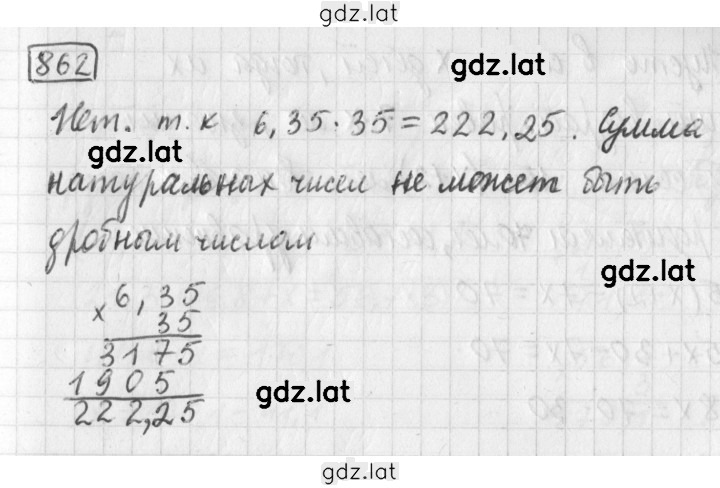 gdz.lat
862
gdz.lat
Нет. т. к 6,35·35=222,25. Сумма
gdz.lat
натуральных чисел не может быть
дробным числом
gdz.lat
× 6,35
35
3175
1905
gdz.lat
222,25
gdz.lat